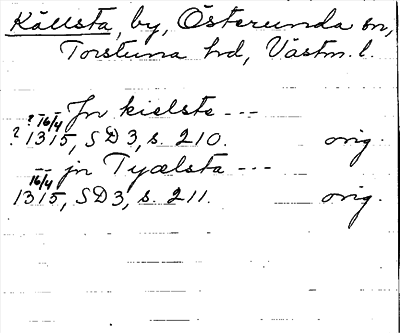 Källsta, by, Österunda sn,
Torstuna hd, Västm. l.
-- Jn kielste ---
? 16/4 1315, SD 3, s. 210. orig.
-- jn Tyælsta ---
16/4 1315, SD 3, s. 211. orig.